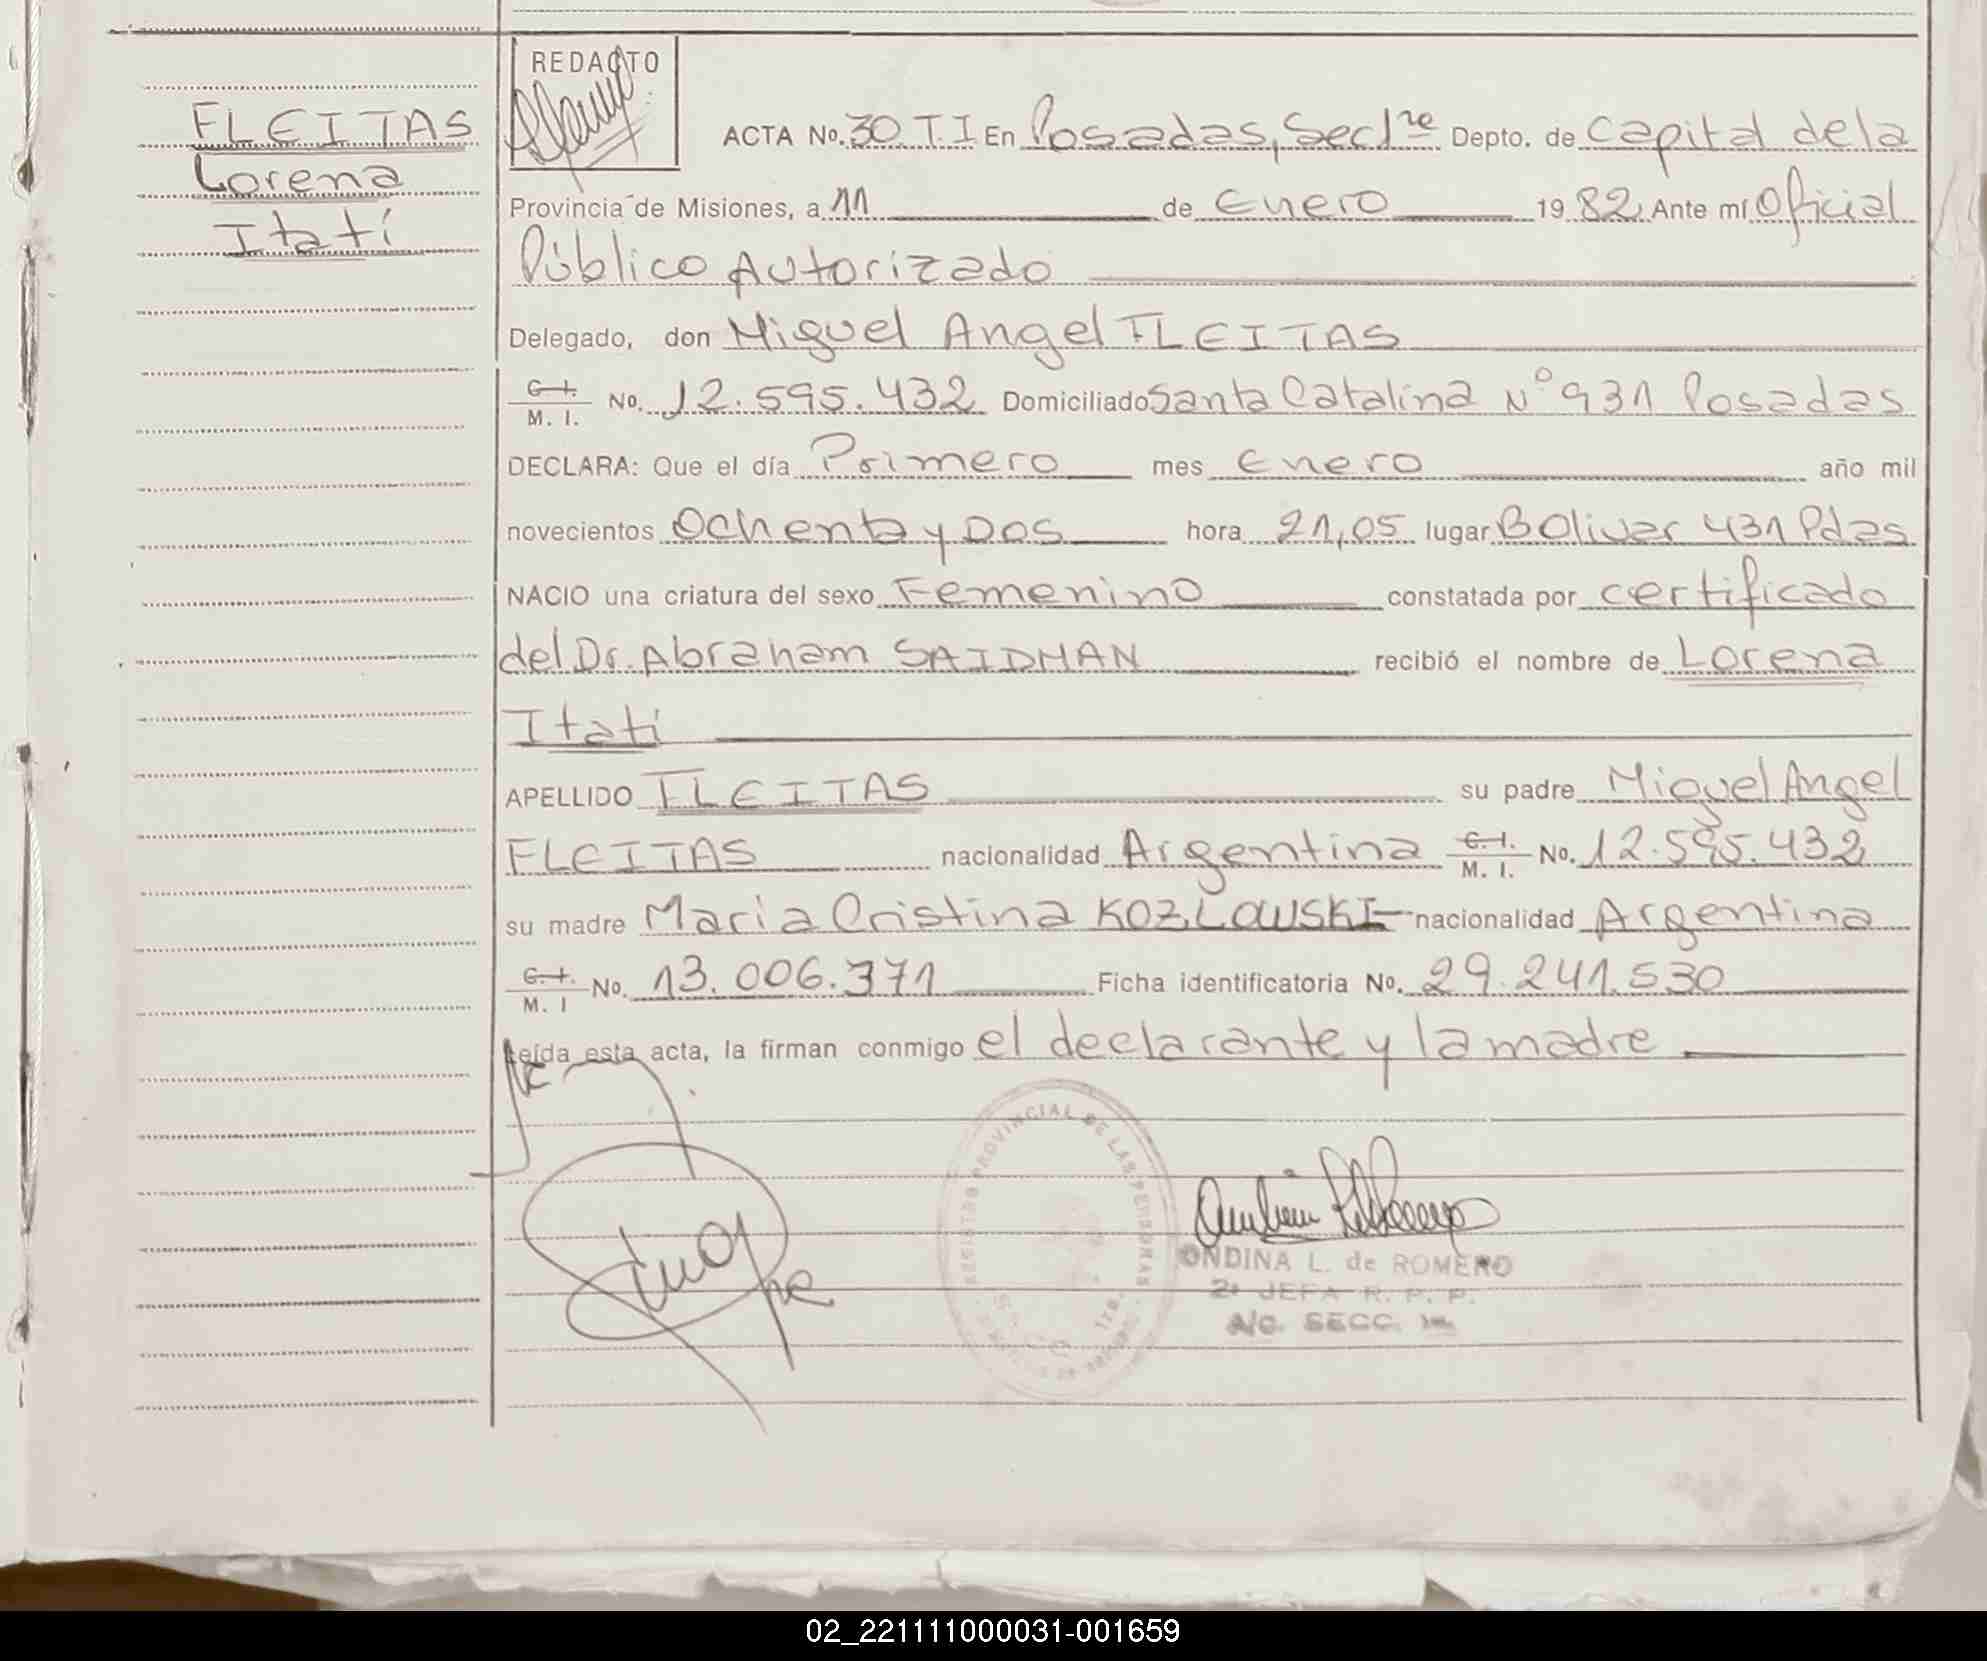 FLEITAS
Lorena
Itatí
REDACTO
ACTA No. 30.T.I En Posadas, Secc 1re Depto. de Capital de la
Provincia de Misiones, a 11 de Enero 1982 Ante mí Oficial
Público Autorizado
Delegado, don Miguel Angel FLEITAS
C. I.
M. I. No. 12.595.432 Domiciliado Santa Catalina Nº 931 Posadas
DECLARA: Que el día Primero mes Enero año mil
novecientos Ochenta y Dos hora 21,05 lugar Bolivar 431 Pdas
NACIO una criatura del sexo Femenino constatada por certificado
del Dr. Abraham SAIDMAN recibió el nombre de Lorena
Itatí
APELLIDO FLEITAS su padre Miguel Angel
FLEITAS nacionalidad Argentina C. I. M. I. No. 12.595.432
su madre Maria Cristina KOZLOWSKI nacionalidad Argentina
C. I. M. I No. 13.006.371 Ficha identificatoria No. 29.241.530
Leída esta acta, la firman conmigo el declarante y la madre
REGISTRO PROVINCIAL DE LAS PERSONAS
ONDINA L. de ROMERO
2ª JEFA R. P. P.
A/C. SECC. 1ra.
02_221111000031-001659